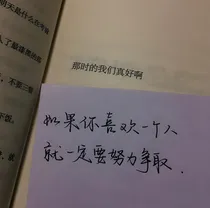 那时的我们真好啊
如果你喜欢一个人
就一定要努力争取.